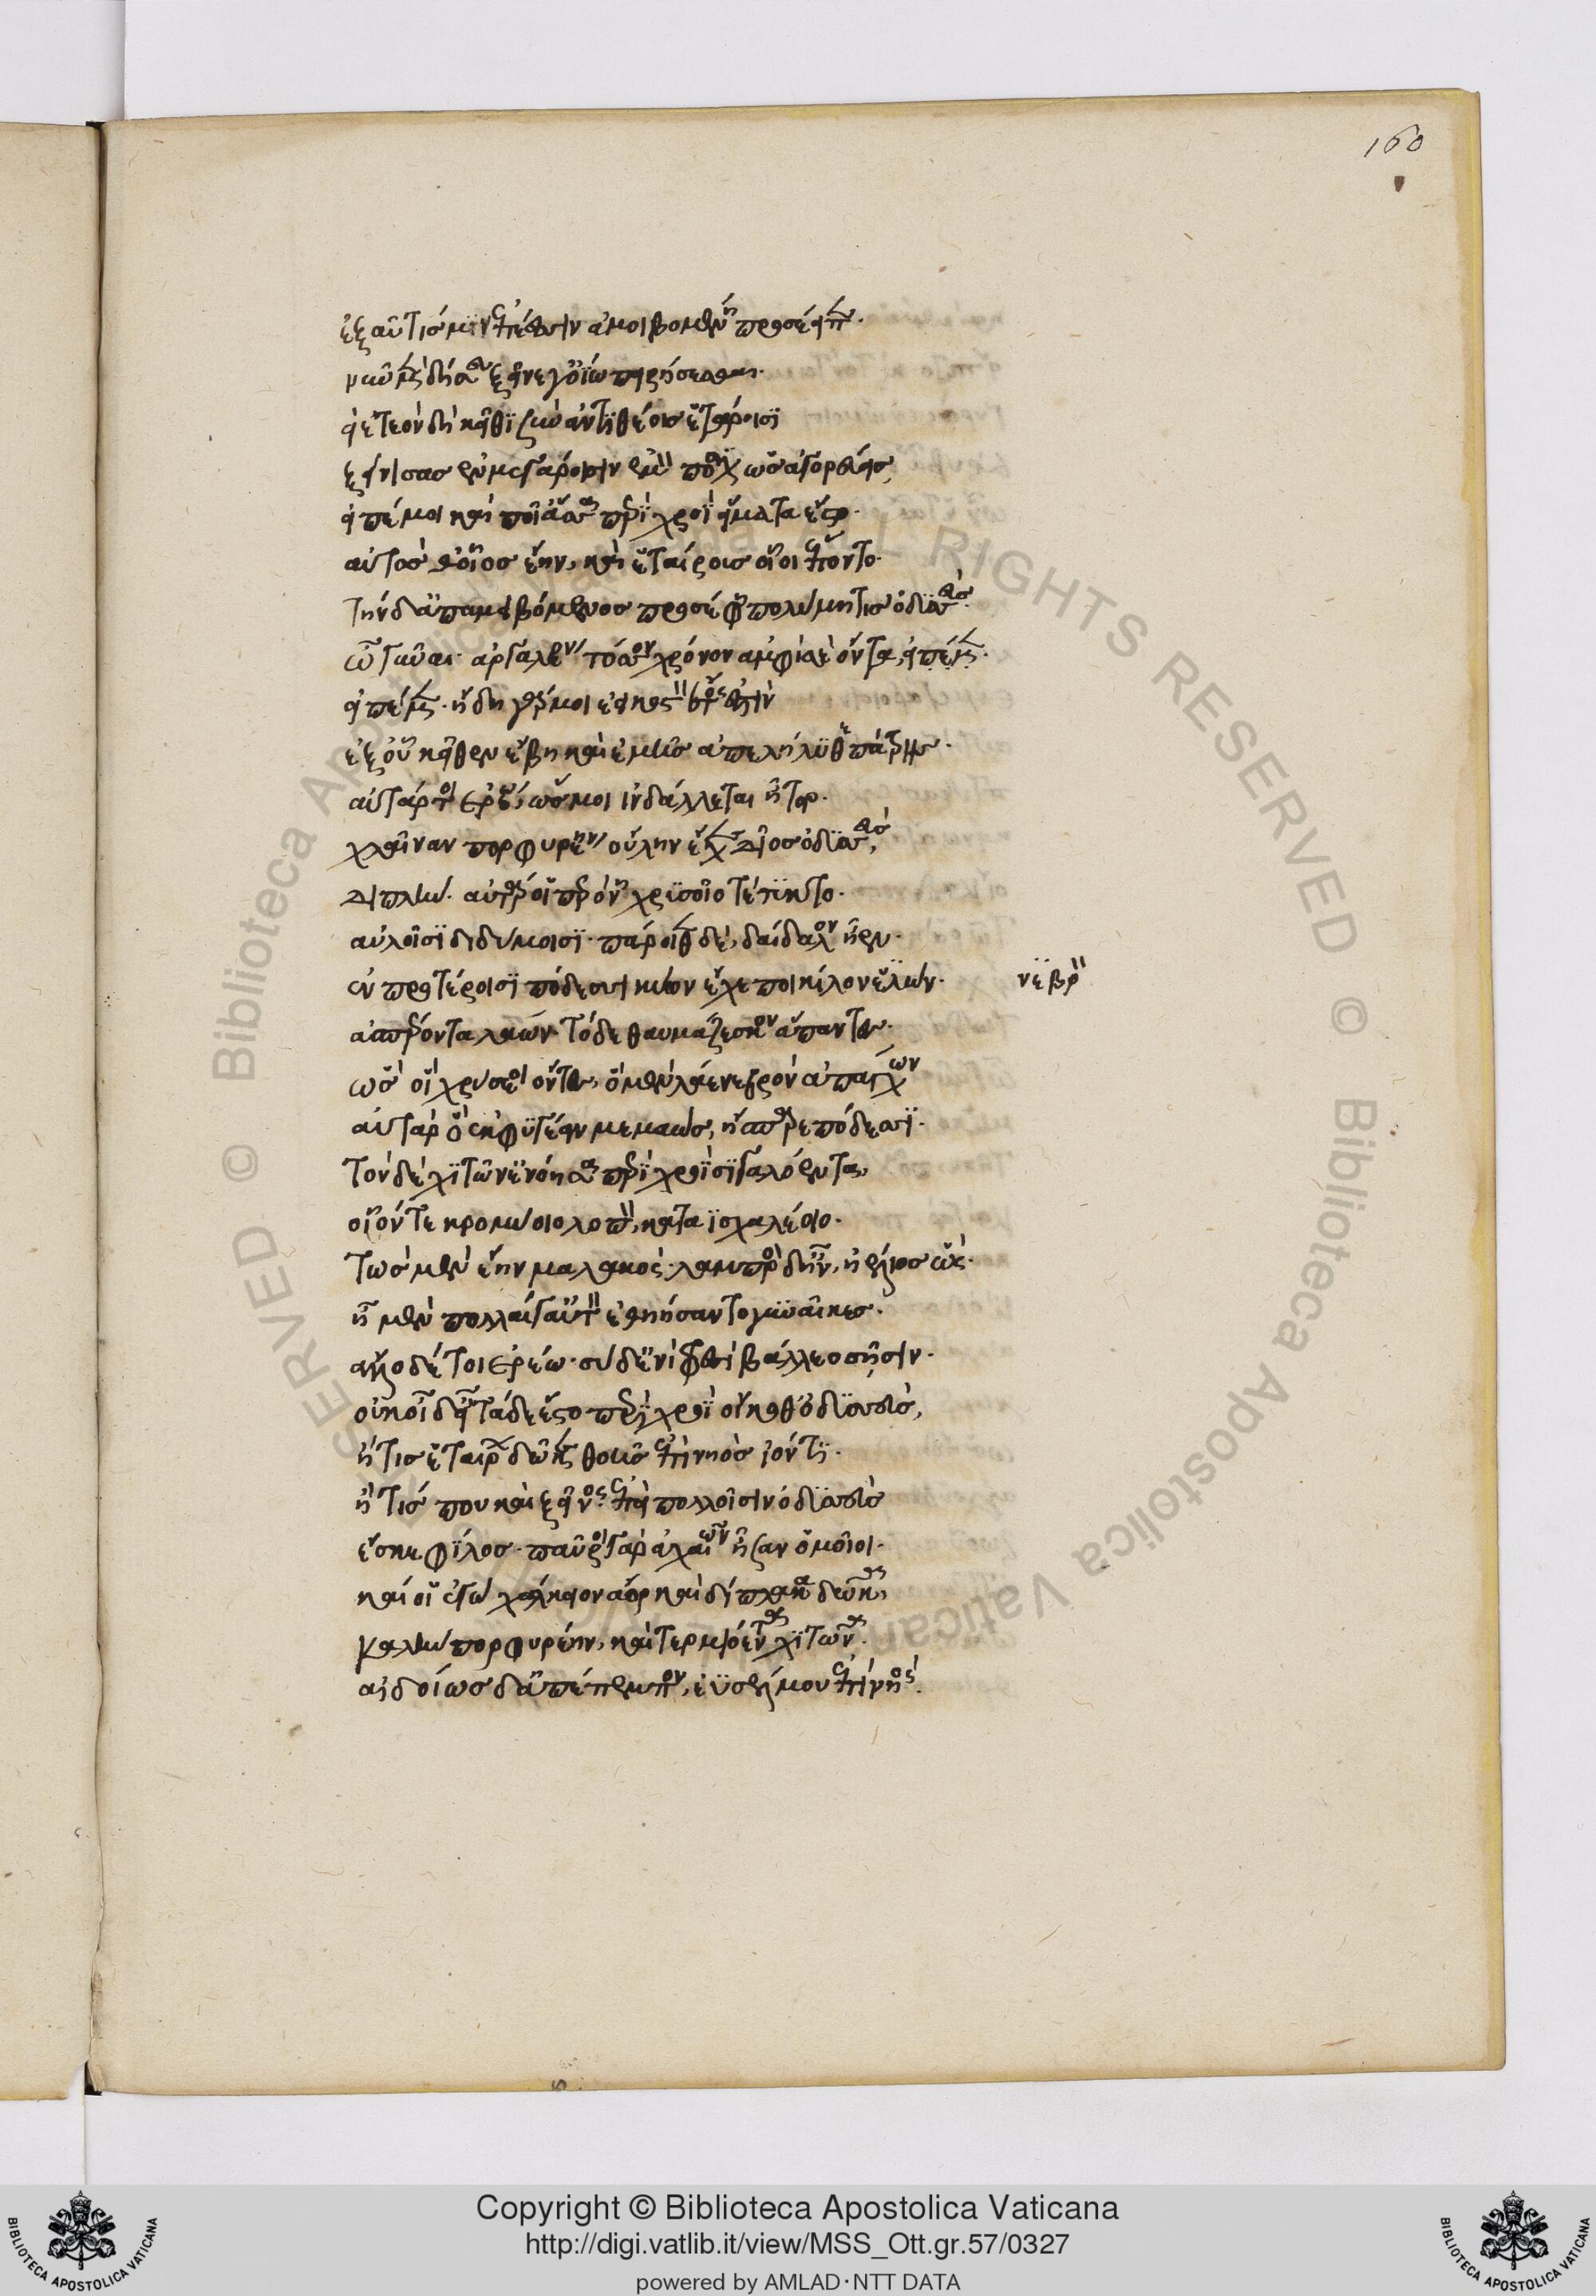 160
ἐξαῦτίς μιν ἐπέεσσιν ἀμειβομένη προσέειπε.
νῦν μὲν δή σευ ξεῖνε γ' ὀΐω πειρήσεσθαι.
εἰ ἐτεὸν δὴ κεῖθι σὺν ἀντιθέοις ἑτάροισι
ξείνισας ἐν μεγάροισιν ἐμὸν πόσιν ὡς ἀγορεύεις,
εἰπέ μοι καὶ ποῖ' ἄσσα περὶ χροῒ εἵματα ἕστο.
αὐτὸς θ' οἷος ἔην, καὶ ἑταίρους οἵ οἱ ἕποντο.
τὴν δ' ἀπαμειβόμενος προσέφη πολύμητις ὀδυσσεύς.
ὦ γύναι ἀργαλέον τόσσον χρόνον ἀμφὶς ἐόντα, εἰπέμεν.
εἰπέμεν. ἤδη γάρ μοι ἐεικοστὸν ἔτος ἐστὶν
ἐξ οὗ κεῖθεν ἔβη καὶ ἐμῆς ἀπελήλυθε πάτρης.
αὐτάρ τοι ἐρέω, ὥς μοι ἰνδάλλεται ἦτορ.
χλαῖναν πορφυρέην οὔλην ἔχε δῖος ὀδυσσεύς,
διπλῆν. αὐτάρ οἱ περόνη χρυσοῖο τέτυκτο.
αὐλοῖσι διδύμοισι. πάροιθε δὲ, δαίδαλον ἦεν.
ἐν προτέροισι πόδεσσι κύων ἔχε ποικίλον ἐλλὸν.
νεβρὸν
ἀσπαίροντα λάων. τόδε θαυμάζεσκον ἅπαντες.
ὡς οἱ χρύσεοι ὄντες, ὁ μὲν λάε νεβρὸν ἀπάγχων
αὐτὰρ ὁ ἐκφυγέειν μεμαὼς, ἤσπαιρε πόδεσσι.
τὸν δὲ χιτῶν' ἐνόησα περὶ χροῒ σιγαλόεντα,
οἷόν τε κρομύοιο λοπὸν, κάτα ἰσχαλέοιο.
τὼς μὲν ἔην μαλακὸς. λαμπρὸς δ' ἦν, ἠέλιος ὣς.
ἦ μὲν πολλαί γ' αὐτὸν ἐθηήσαντο γυναῖκες.
ἄλλο δέ τοι ἐρέω. σὺ δ' ἐνὶ φρεσὶ βάλλεο σῇσιν.
οὐκ οἶδ' εἰ τάδε ἕστο περὶ χροῒ οἴκοθ' ὀδυσσεὺς,
ἤ τις ἑταίρων δῶκε θοῆς ἐπὶ νηὸς ἰόντι.
ἤ τίς που καὶ ξεῖνος. ἐπεὶ πολλοῖσιν ὀδυσσεὺς
ἔσκε φίλος. παῦροι γὰρ ἀχαιῶν ἦσαν ὁμοῖοι.
καί οἱ ἐγὼ χάλκειον ἄορ καὶ δίπλακα δῶκα,
καλὴν πορφυρέην, καὶ τερμιόεντα χιτῶνα.
αἰδοίως δ' ἀπέπεμπον, ἐϋσσέλμου ἐπὶ νηὸς.
Copyright © Biblioteca Apostolica Vaticana
http://digi.vatlib.it/view/MSS_Ott.gr.57/0327
powered by AMLAD·NTT DATA
BIBLIOTECA APOSTOLICA VATICANA
BIBLIOTECA APOSTOLICA VATICANA